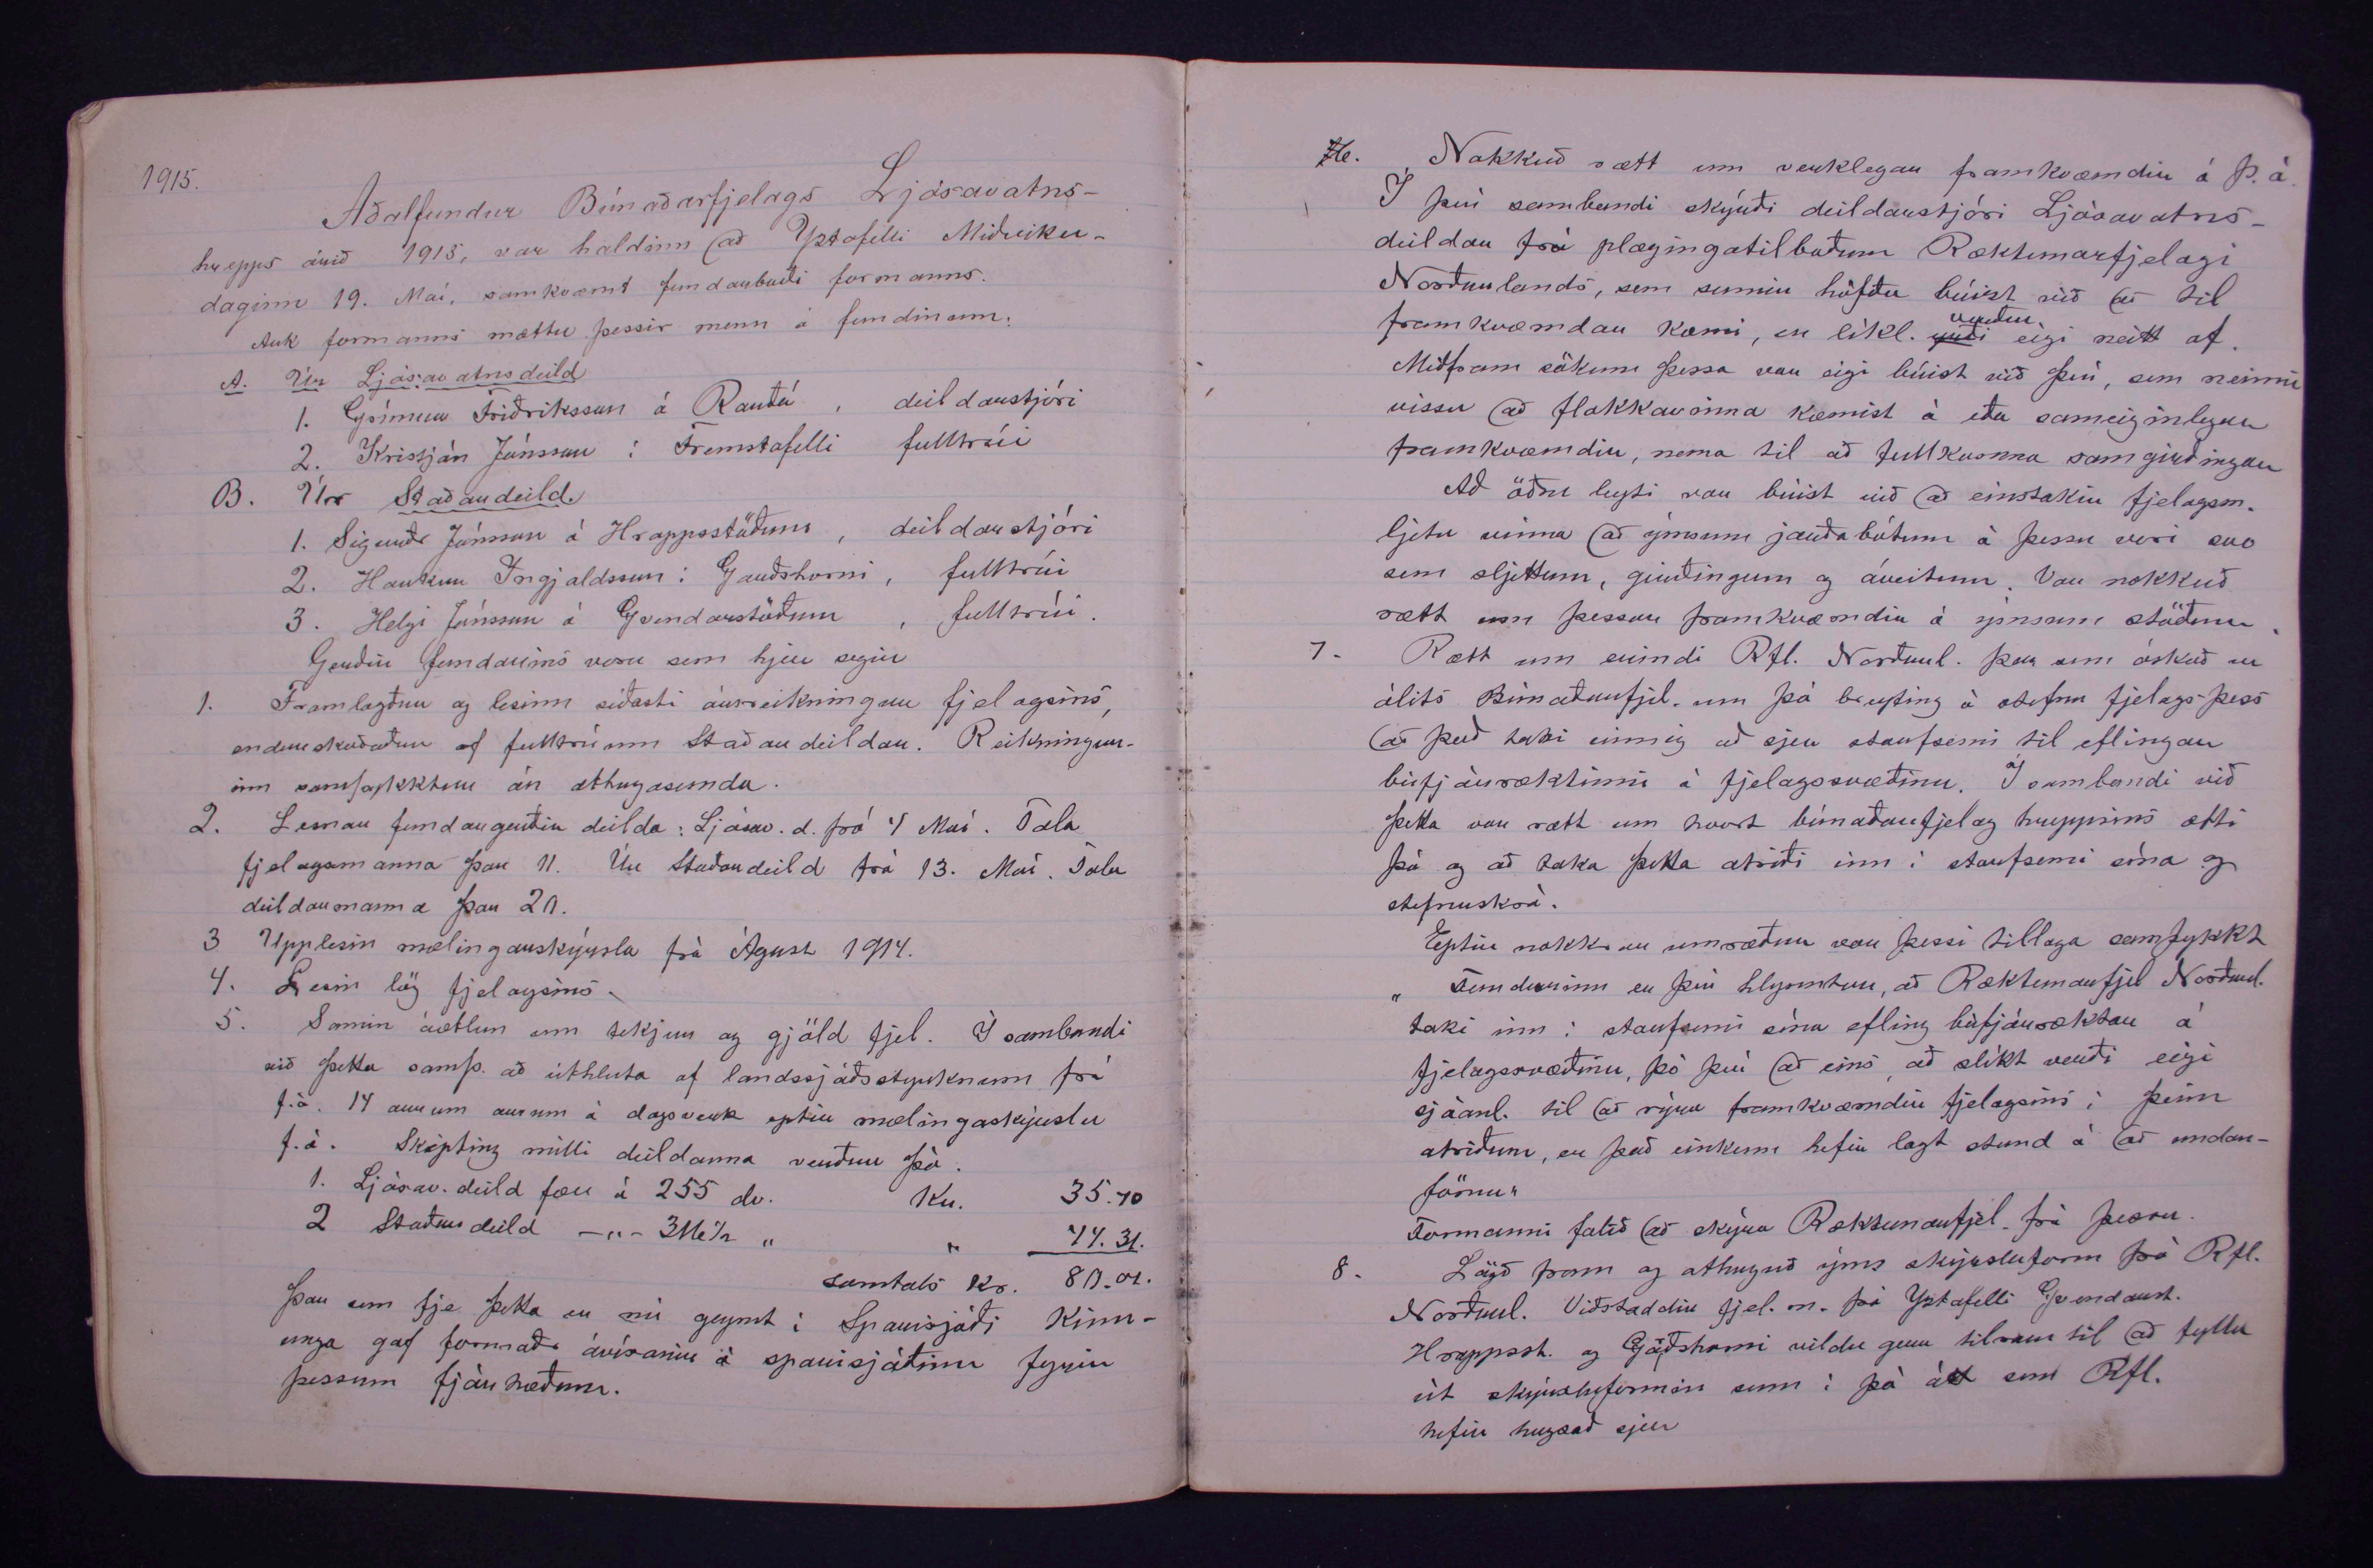 1915.
Aðalfundur Búnaðarfjelags Ljósavatns-
hrepps árið 1915, var haldinn að Yztafelli Miðviku-
daginn 19. Maí, samkvæmt fundarboði formanns.
Auk formanns mættu þessir menn á fundinum:
A. Úr Ljósavatnsdeild
1. Grímur Friðriksson á Rauðá, deildarstjóri
2. Kristján Jónsson í Fremstafelli fulltrúi
B. Úr Staðardeild.
1. Sigurðr Jónsson á Hrappsstöðum, deildarstjóri
2. Haukur Ingjaldsson í Garðshorni, fulltrúi
3. Helgi Jónsson á Gvendarstöðum, fulltrúi.
Gerðir fundarins voru sem hjer segir
1. Framlagður og lesinn síðasti ársreikningur fjelagsins,
endurskoðaður af fulltrúum Staðardeildar. Reikningur-
inn samþykktur án athugasemda.
2. Lesnar fundargerðir deilda: Ljósav. d. frá 4 Maí. Tala
fjelagsmanna þar 11. Úr Staðardeild frá 13. Maí. Tala
deildarmanna þar 21.
3 Upplesin mælingarskýrsla frá Ágúst 1914.
4. Lesin lög fjelagsins.
5. Samin áætlun um tekjur og gjöld fjel. Í sambandi
við þetta samþ. að úthluta af landssjóðsstyrknum frá
f.á. 14 aurum aurum á dagsverk eptir mælingaskýrslu
f.á. Skipting milli deildanna verður þá.
1. Ljósav. deild fær á 255 dv. Kr. 35.70
2 Staðardeild -"- 316½ " " 44.31.
samtals Kr. 80.01.
Þar sem fje þetta er nú geymt í Sparisjóði Kinn-
unga gaf formaðr ávísanir á sparisjóðinn fyrir
þessum fjárhæðum.
6. Nokkuð rætt um verklegar framkvæmdir á þ. á.
Í því sambandi skýrði deildarstjóri Ljósavatns-
deildar frá plægingatilboðum Ræktunarfjelagi
Norðurlands, sem sumir höfðu búizt við að til
framkvæmdar kæmi, en líkl. verður eigi neitt af.
Meðfram sökum þessa var eigi búist við því, sem neinni
vissu að flokkavinna kæmist á eða sameiginlegar
framkvæmdir, nema til að fullkomna samgirðingar
Að öðru leyti var búist við að einstakir fjelagsm.
ljetu vinna að ýmsum jarðabótum á þessu vori svo
sem sljettum, girðingum og áveitum. Var nokkuð
rætt um þessar framkvæmdir á ýmsum stöðum.
7. Rætt um erindi Rfl. Norðurl. þar sem óskað er
álits Búnaðarfjel. um þá breyting á stefnu fjelags þess
að það taki einnig að sjer starfsemi til eflingar
búfjárræktinni á fjelagssvæðinu. Í sambandi við
þetta var rætt um hvort búnaðarfjelag hreppsins ætti
þá og að taka þetta atriði inn í starfsemi sína og
stefnuskrá.
Eptir nokkrar umræður var þessi tillaga samþykkt
„Fundurinn er því hlynntur, að Ræktunarfjel Norðurl.
taki inn í starfsemi sína efling búfjárræktar á
fjelagssvæðinu, þó því að eins, að slíkt verði eigi
sjáanl. til að rýra framkvæmdir fjelagsins í þeim
atriðum, er það einkum hefir lagt stund á að undan-
förnu"
Formanni falið að skýra Ræktunarfjel. frá þessu.
8. Lögð fram og athuguð ýms skýrsluform frá Rfl.
Norðurl. Viðstaddir fjel.m. frá Yztafelli Gvendarst.
Hrappsst. og Garðshorni vildu gera tilraun til að fylla
út skýrsluformin sum í þá átt sem Rfl.
hefir hugsað sjer